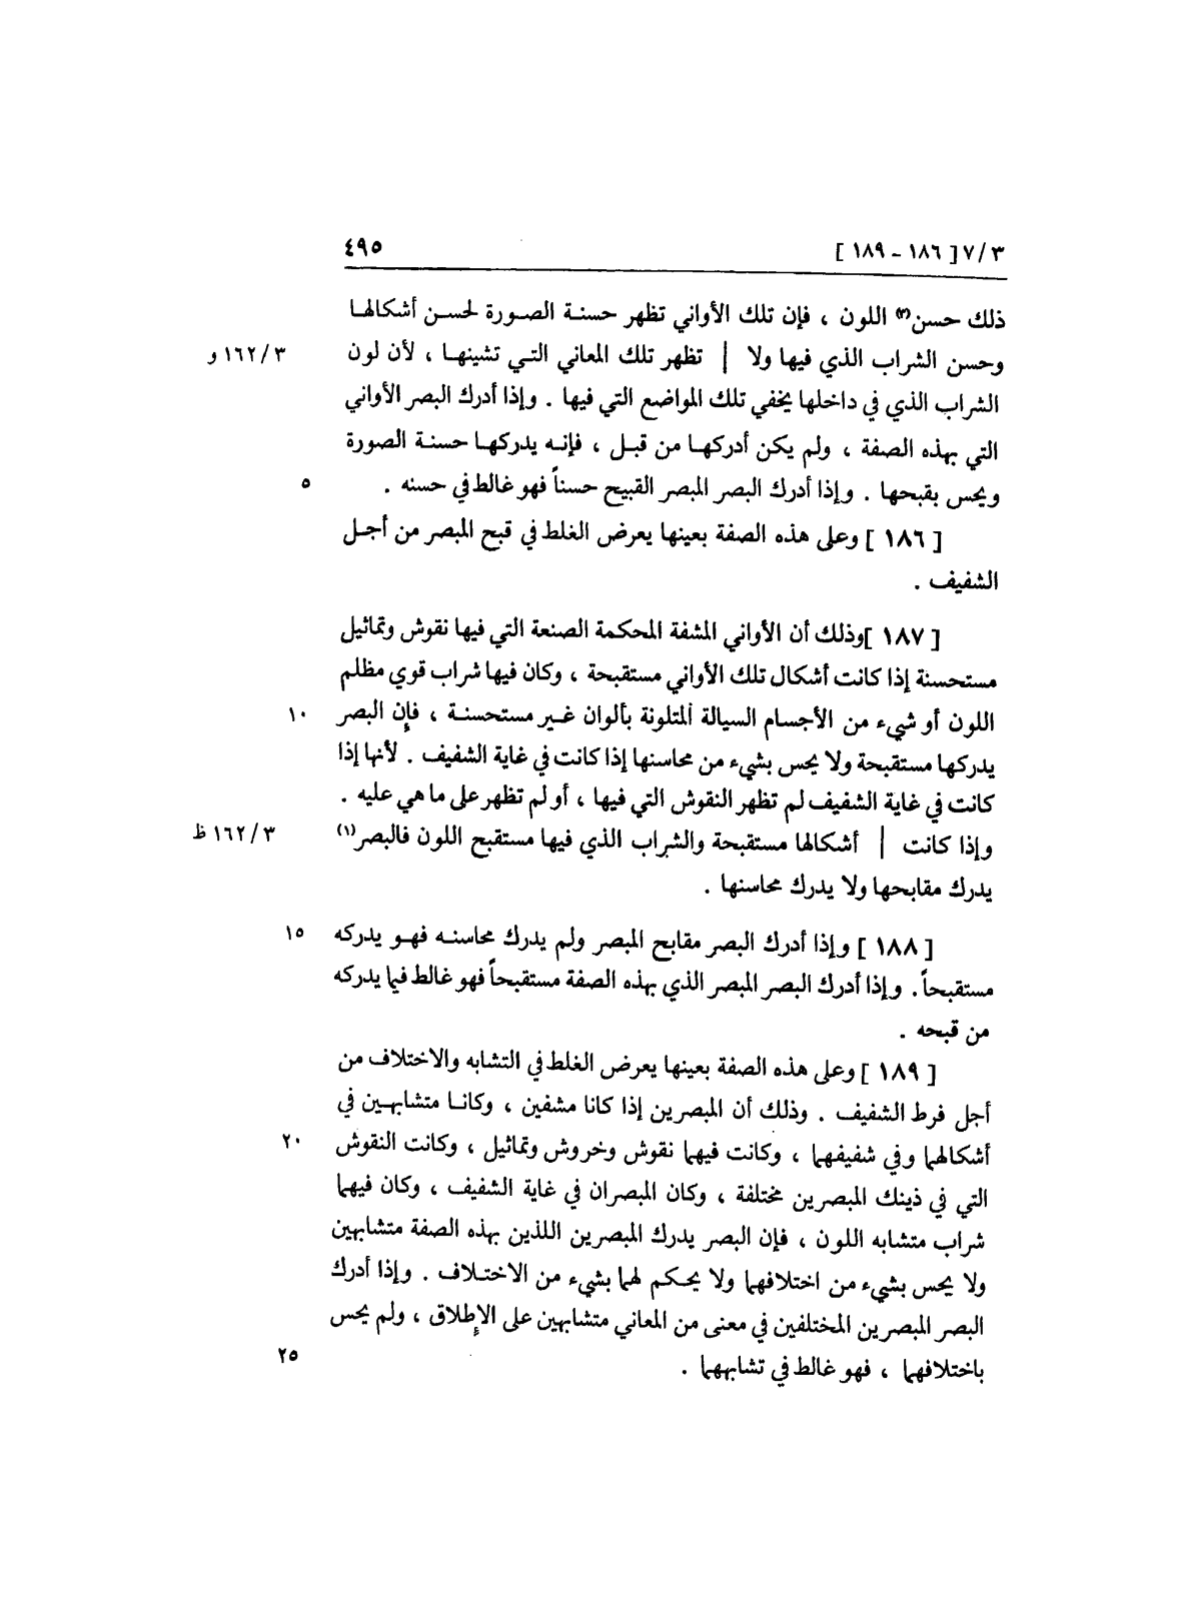 ٧/٣ [ ١٨٦ - ١٨٩ ] ٤٩٥
ذلك حسن(٣) اللون ، فإن تلك الأواني تظهر حسنة الصورة لحسن أشكالها
وحسن الشراب الذي فيها ولا | تظهر تلك المعاني التي تشينها ، لأن لون ٣/ ١٦٢ و
الشراب الذي في داخلها يخفي تلك المواضع التي فيها . وإذا أدرك البصر الأواني
التي بهذه الصفة ، ولم يكن أدركها من قبل ، فإنه يدركها حسنة الصورة
ويحس بقبحها . وإذا أدرك البصر المبصر القبيح حسناً فهو غالط في حسنه . ٥
[ ١٨٦ ] وعلى هذه الصفة بعينها يعرض الغلط في قبح المبصر من أجل
الشفيف .
[ ١٨٧ ]وذلك أن الأواني المشفة المحكمة الصنعة التي فيها نقوش وتماثيل
مستحسنة إذا كانت أشكال تلك الأواني مستقبحة ، وكان فيها شراب قوي مظلم
اللون أو شيء من الأجسام السيالة المتلونة بألوان غير مستحسنة ، فإن البصر ١٠
يدركها مستقبحة ولا يحس بشيء من محاسنها إذا كانت في غاية الشفيف . لأنها إذا
كانت في غاية الشفيف لم تظهر النقوش التي فيها ، أو لم تظهر على ما هي عليه .
وإذا كانت | أشكالها مستقبحة والشراب الذي فيها مستقبح اللون فالبصر(١) ٣/ ١٦٢ ظ
يدرك مقابحها ولا يدرك محاسنها .
[ ١٨٨ ] وإذا أدرك البصر مقابح المبصر ولم يدرك محاسنه فهو يدركه ١٥
مستقبحاً . وإذا أدرك البصر المبصر الذي بهذه الصفة مستقبحاً فهو غالط فيما يدركه
من قبحه .
[ ١٨٩ ] وعلى هذه الصفة بعينها يعرض الغلط في التشابه والاختلاف من
أجل فرط الشفيف . وذلك أن المبصرين إذا كانا مشفين ، وكانا متشابهين في
أشكالهما وفي شفيفهما ، وكانت فيهما نقوش وخروش وتماثيل ، وكانت النقوش ٢٠
التي في ذينك المبصرين مختلفة ، وكان المبصران في غاية الشفيف ، وكان فيهما
شراب متشابه اللون ، فإن البصر يدرك المبصرين اللذين بهذه الصفة متشابهين
ولا يحس بشيء من اختلافهما ولا يحكم لهما بشيء من الاختلاف . وإذا أدرك
البصر المبصرين المختلفين في معنى من المعاني متشابهين على الإطلاق ، ولم يحس
باختلافهما ، فهو غالط في تشابههما . ٢٥